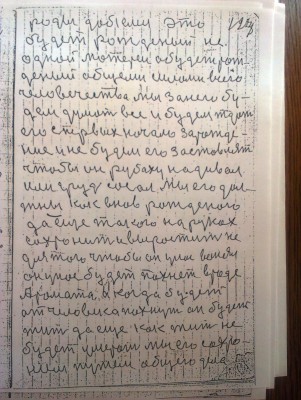 роды добьемся Это 119
будет рожденый не
одной матерей а будет рож
деный общеми силами всего
человечества мы за него бу-
дем думать все и будем ждать
его с первых начало зарожде-
ние и не будем его заставлять
чтобы он рубаху надивал
или груд сосал. Мы его дол-
жны как вновь рожденого
да еще такого на руках
сохранит и выростит не
для того чтобы он умер вонял
он у нас будет пахнет вроде
Аромата, А когда будет
от человека пахнут он будет
жит да еще как жит не
будет умерат мы его сохро-
ним путем общего